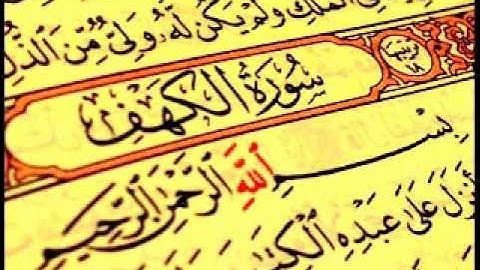 فِى ٱلْمُلْكِ وَلَمْ يَكُن لَّهُۥ وَلِىٌّ مِّنَ ٱلذُّلِّ
سُورَةُ ٱلْكَهْفِ
بِسْمِ ٱللَّهِ ٱلرَّحْمَٰنِ ٱلرَّحِيمِ
أَنزَلَ عَلَىٰ عَبْدِهِ ٱلْكِتَٰبَ